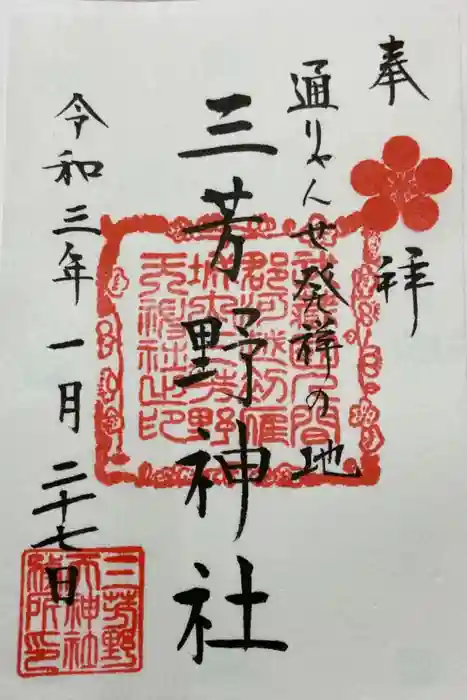 奉拝
通りゃんせ発祥の地
三芳野神社
令和三年一月二十七日
三芳野
天神社